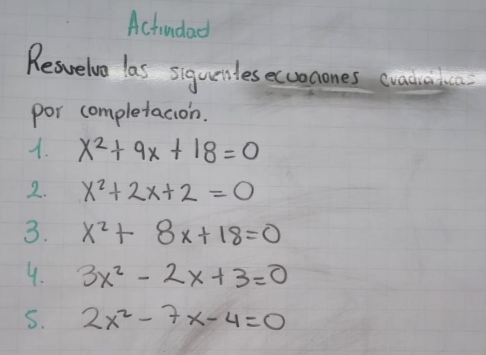 Actividad
Resuelva las siguientes ecuaciones cuadráticas
por completación.
1. x²+ 9x + 18 = 0
2. x²+2x+2 = 0
3. x²+ 8x+18=0
4. 3x² - 2x + 3=0
5. 2x² - 7x-4=0